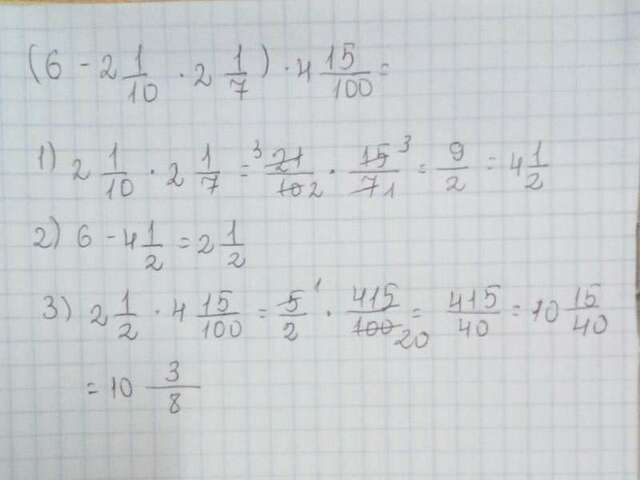 (6 - 2 1/10 · 2 1/7) · 4 15/100 =
1) 2 1/10 · 2 1/7 = ³21/10 2 · 15 ³/7 1 = 9/2 = 4 1/2
2) 6 - 4 1/2 = 2 1/2
3) 2 1/2 · 4 15/100 = 5 ¹/2 · 415/100 20 = 415/40 = 10 15/40
= 10 3/8